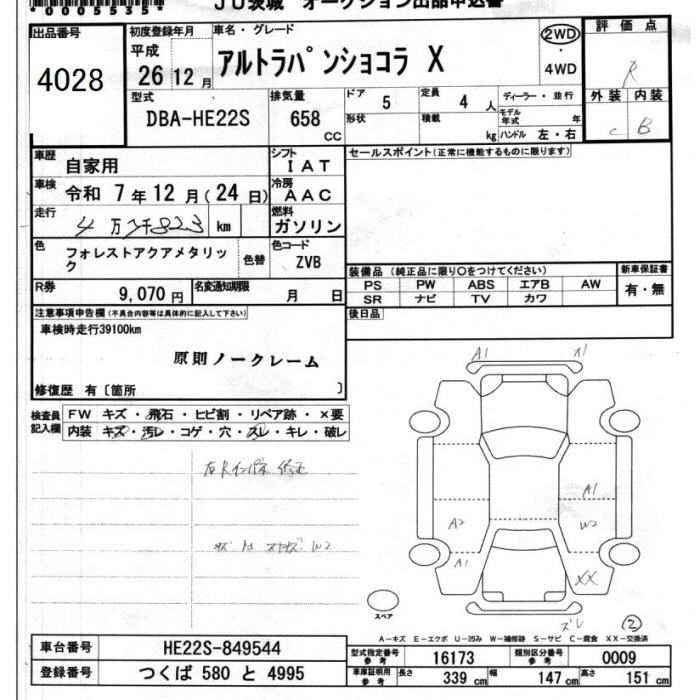 *0005535*
JU茨城 オークション出品申込書
出品番号
4028
初度登録年月
平成
26 12 月
車名・グレード
アルトラパンショコラ X
2WD
・
4WD
評価点
R
外装 内装
C B
型式
DBA-HE22S
排気量
658
cc
ドア 5
定員 4 人
形状
積載 kg
ディーラー・並行
モデル年式 年
ハンドル 左・右
車歴
自家用
シフト
IAT
セールスポイント(正常に機能するものに限ります)
車検
令和 7 年 12 月( 24 日)
冷房
AAC
走行
km
燃料
ガソリン
色
フォレストアクアメタリック
色替
色コード
ZVB
装備品 (純正品に限り○をつけてください)
新車保証書
PS PW ABS エアB AW
有・無
SR ナビ TV カワ
R券
9,070 円
名変通知期限
月 日
後日品
注意事項申告欄(不具合内容等は具体的に記入して下さい)
車検時走行39100km
原則ノークレーム
修復歴 有〔箇所 〕
検査員記入欄
FW キズ・飛石・ヒビ割・リペア跡・×要
内装 キズ・汚レ・コゲ・穴・スレ・キレ・破レ
A1 A1
A1
A2 W2
A1 XX
スペア
ズレ ②
A-キズ E-エクボ U-凹み W-補修跡 S-サビ C-腐食 XX-交換済
車台番号
HE22S-849544
登録番号
つくば 580 と 4995
型式指定番号 参考
16173
類別区分番号 参考
0009
車庫証明用 参考
長さ 339 cm
幅 147 cm
高さ 151 cm